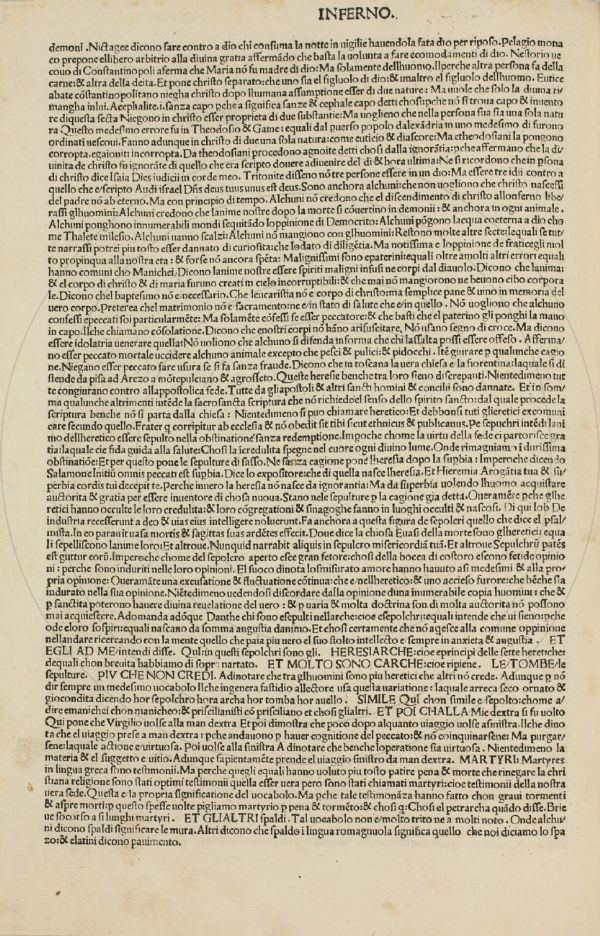 INFERNO.
demoni. Nictagee dicono fare contro a dio chi consuma la notte in uigilie hauendola fata dio per riposo. Pelagio mona
co prepone ellibero arbitrio alla diuina gratia affermãdo che basta la uolunta a fare ecomãdamenti di dio. Nestorio ue
couo di Constantinopoli aferma che Maria nõ fu madre di dio: Ma solamente dellhuomo. Ilperche altra persona fa della
carne: & altra della deita. Et pone christo separato: che uno sia el figluolo di dio: & unaltro el figluolo dellhuomo. Eutice
abate cõstantinopolitano niegha christo dopo lhumana assumptione esser di due nature: Ma uuole che solo la diuina ri/
mangha inlui. Acephalite. i. sanza capo
re diquesta secta Niegono in christo esser proprieta di due substantie: Ma uogliono che nella persona sua sia una sola natu
ra Questo medesimo errore fu in Theodosio & Gaine: equali dal puerso popolo dalexãdria in uno medesimo di furono
ordinati uescoui. Fanno adunque in christo di due una sola natura: come euticio & diascoro: Ma etheodosiani la pongono
corropta. egaioniti incorropta. Da theodosiani procedono agnoite detti chosi dalla ignorãtia: pche affermano che la di/
uinita de christo fu ignorãte di quello che era scripto douere aduenire del di & hora ultima: Ne si ricordono che in psona
di christo dice Isaia Dies iudicii in corde meo. Tritonite disseno nõ tre persone essere in un dio: Ma essere tre idii contro a
quello che e scripto Audi israel Dñs deus tuus unus est deus. Sono anchora alchuni: che non uogliono che christo nascessi
del padre nõ ab eterno. Ma con principio di tempo. Alchuni nõ credono che il discendimento di christo allonferno libe/
rassi glhuomini: Alchuni credono che lanime nostre dopo la morte si couertino in demonii: & anchora in ogni animale.
Alchuni ponghono innumerabili mondi sequitãdo loppinione di Democrito: Alchuni põgono lacqua coeterna a dio cho
me Thalete milesio. Alchuni uanno scalzi: Alchuni nõ mangiono con glhuomini: Restono molte altre secte: lequali se tut/
te narrassi potrei piu tosto esser dannato di curiosita: che lodato di diligẽtia. Ma notissima e loppinione de fraticegli mol
to propinqua alla nostra eta: & forse nõ ancora spẽta: Malignissimi sono epaterini: equali oltre amolti altri errori equali
hanno comuni cho Manichei: Dicono lanime nostre essere spiriti maligni infusi ne corpi dal diauolo. Dicono che lanima:
& el corpo di christo & di maria furuno creati in cielo incorruptibili: & che mai nõ mangiorono ne beuono cibo corpora
le. Dicono chel baptesimo nõ e necessario. Che leucaristia nõ e corpo di christo: ma semplice pane & uino in memoria del
uero corpo. Preterea chel matrimonio nõ e sacramento: ne e in stato di salute che e in quello. Nõ uogliono che alchuno
confessi epeccati soi particularmẽte: Ma solamẽte cõfessi se esser peccatore: & che basti che el paterino gli ponghi la mano
in capo. Ilche chiamano cõsolatione. Dicono che enostri corpi nõ hãno arisuscitare. Nõ usano segno di croce. Ma dicono
essere idolatria uenerare quella: Nõ uoliono che alchuno si difenda in forma che chi lassalta possi essere offeso. Afferma/
no esser peccato mortale uccidere alchuno animale excepto che pesci & pulici: & pidocchi. Itẽ giurare p qualunche cagio
ne. Niegano esser peccato fare usura se si fa sanza fraude. Dicono che in toscana la uera chiesa e la fiorentina: laquale si di
stende da pisa ad Arezo a mõtepulciano & agrosseto. Queste heresie benche tra loro sieno discrepanti. Nientedimeno tut
te congiurano contro allapostolica sede. Tutte da gliapostoli & altri sancti homini & concilii sono dannate. Et in som/
ma qualunche altrimenti intẽde la sacrosancta scriptura che nõ richiede el senso dello spirito sancto: dal quale procede la
scriptura benche nõ si parta dalla chiesa: Nientedimeno si puo chiamare heretico: Et debbonsi tuti glieretici excomuni
care secundo quello. Frater q corripitur ab ecclesia & nõ obedit sit tibi sicut ethnicus & publicanus. Pe sepuchri intẽdi lani
mo dellheretico essere sepulto nella obstinatione sanza redemptione. Impoche chome la uirtu della fede ci partorisce gra
tia: laquale cie fida guida alla salute: Chosi la icredulita spegne nel cuore ogni diuino lume. Onde rimagniamo i durissima
obstinatiõe: Et per questo pone le sepulture di sasso. Ne sanza cagione põe lheresia dopo la supbia: Imperoche dicendo
Salamone Initiũ omnis peccati est supbia. Dice lo expositore: che di quella nasce lheresia. Et Hieremia Arogãtia tua & su/
perbia cordis tui decepit te. Perche inuero la heresia nõ nasce da ignorantia: Ma da superbia uolendo lhuomo acquistare
auctorita & gratia per essere inuentore di chosa nuoua. Stano nele sepulture p la cagione gia detta. Queramẽte pche glhe
retici hanno occulte le loro credulita: & loro cõgregationi & sinagoghe fanno in luoghi occulti & nascosi. Di qui Iob De
industria recesserunt a deo & uias eius intelligere noluerunt. Fa anchora a questa figura de sepolcri quello che dice el psal/
mista. In eo parauit uasa mortis & sagittas suas ardẽtes effecit. Doue dice la chiosa Euasi della morte sono glheretici: equa
li sepelliscono lanime loro: Et altroue. Nunquid narrabit aliquis in sepulcro misericordiã tuã. Et altroue Sepulchrũ patẽs
est guttur eorũ. Imperoche chome del sepolcro aperto esce gran fetore: chosi della bocca di costoro escono fetide opinio
ni: perche sono induriti nelle loro opinioni. El fuoco dinota losmisurato amore hanno hauuto asi medesimi & alla pro/
pria opinione: Queramãte una excusatione & fluctuatione cõtinua: che e nellheretico: & uno accieso furore: che bẽche sia
indurato nella sua opinione. Niẽtedimeno uedendosi discordare dalla opinione duna inumerabile copia huomini: che &
p sanctita poterono hauere diuina reuelatione del uero: & p uaria & molta doctrina son di molta auctorita nõ possono
mai acquiescere. Adomanda adõque Danthe chi sono esepulti nellarche: cioe esepolchri: equali intende che ui sieno: pche
ode eloro sospiri: equali nascano da somma angustia danimo. Et chosi certamente che nõ aqesce alla comune oppinione
nellandare ricercando con la mente quello che paia piu uero el suo stolto intellecto e sempre in anxieta & angustia. ET
EGLI AD ME intendi disse. Qui: in questi sepolchri sono gli. HERESIARCHE: cioe eprincipi delle sette heretiche:
dequali chon breuita habbiamo di sopra nartato. ET MOLTO SONO CARCHE: cioe ripiene. LE TOMBE: le
sepulture. PIV CHE NON CREDI. Adinotare che tra glhuomini sono piu heretici che altri nõ crede. Adunque p nõ
dir sempre un medesimo uocabolo Ilche ingenera fastidio allectore usa questa uariatione: laquale arreca seco ornato &
giocondita dicendo hor sepolchro hora archa hor tomba hor auello. SIMILE QVI chon simile e sepolto: chome a/
dire emanichei chon manicheo: & priscilianisti cõ prisciliano et chosi glialtri. ET POI CHALLA Mie dextra si fu uolto
Qui pone che Virgilio uolse alla man dextra Et poi dimostra che poco dopo alquanto uiaggo uolse asinistra. Ilche dino
ta che el uiaggo prese a man dextra: pche andauono p hauer cognitione del peccato: & nõ coinquinarsene: Ma purgar/
sene: laquale actione e uirtuosa. Poi uolse alla sinistra A dinotare che benche loperatione sia uirtuosa. Nientedimeno la
materia & el suggetto e uitio. Adunque sapientamẽte prende el uiaggo sinistro da man dextra. MARTYRI: Martyres
in lingua greca sono testimonii. Ma perche quegli equali hanno uoluto piu tosto patire pena & morte che rinegare la chri
stiana religione sono stati optimi testimonii quella esser uera pero sono stati chiamati martyri: cioe testimonii della nostra
uera fede. Questa e la propria significatione del uocabolo. Ma pche tal testimonãza hanno fatto chon graui tormenti
& aspre morti: p questo spesse nolte pigliamo martyrio p pena & tormẽto: & chosi q: Chosi el petrarcha quãdo disse. Brie
ue socorso a si lunghi martyri. ET GLIALTRI spaldi. Tal uocabolo non e molto trito ne a molti noto. Onde alchu/
ni dicono spaldi significare le mura. Altri dicono che spaldo i lingua romagnuola significa quello che noi diciamo lo spa
zo: & elatini dicono pauimento.